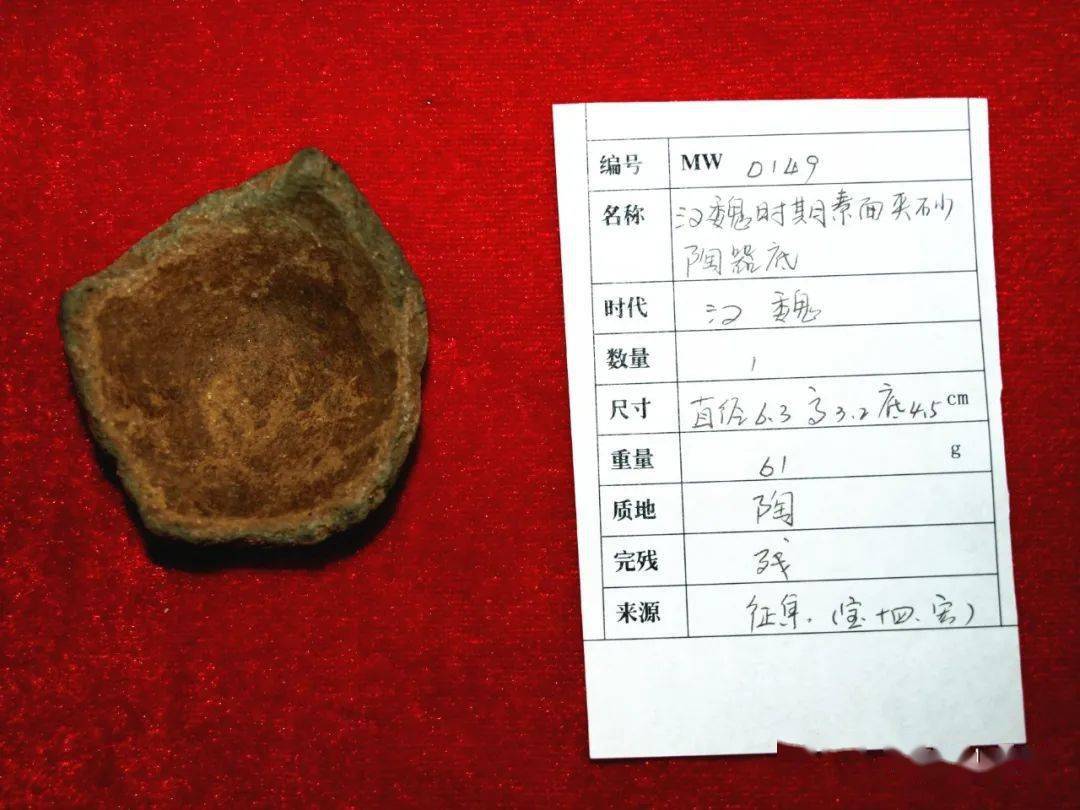 编号 MW 0149
名称 汉魏时期素面夹砂
陶器底
时代 汉魏
数量 1
尺寸 直径6.3 高3.2 底4.5cm
重量 61 g
质地 陶
完残 残
来源 征集.(宝.十四.宏)